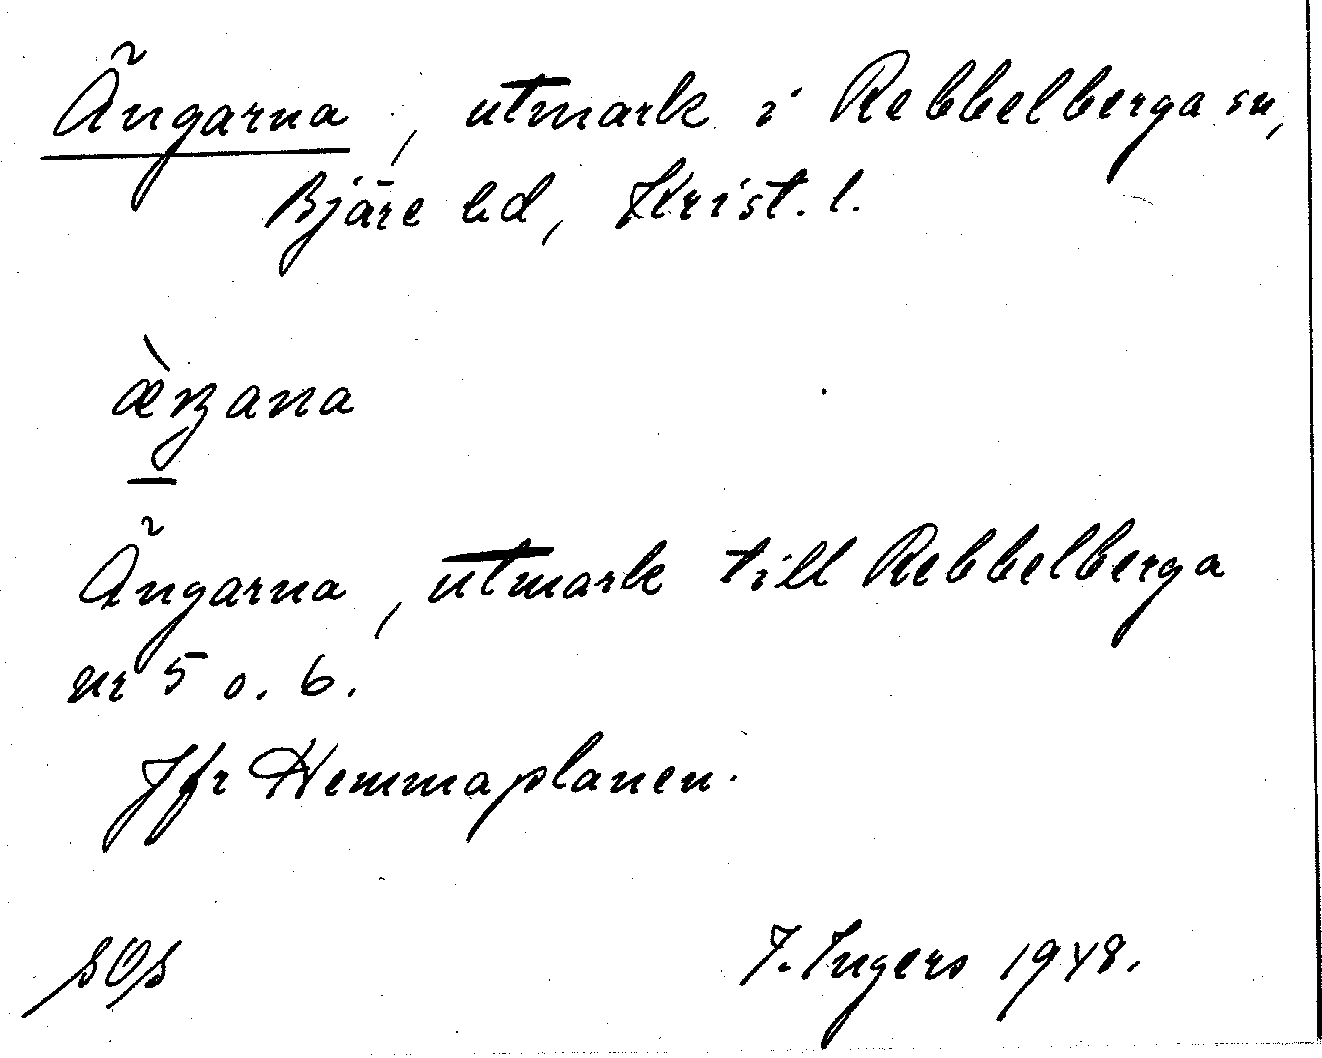 Ängarna, utmark i Rebbelberga sn,
Bjäre hd, Krist. l.
Ängarna, utmark till Rebbelberga
nr 5 o. 6.
Jfr Hemmaplanen.
I. Ingers 1948.